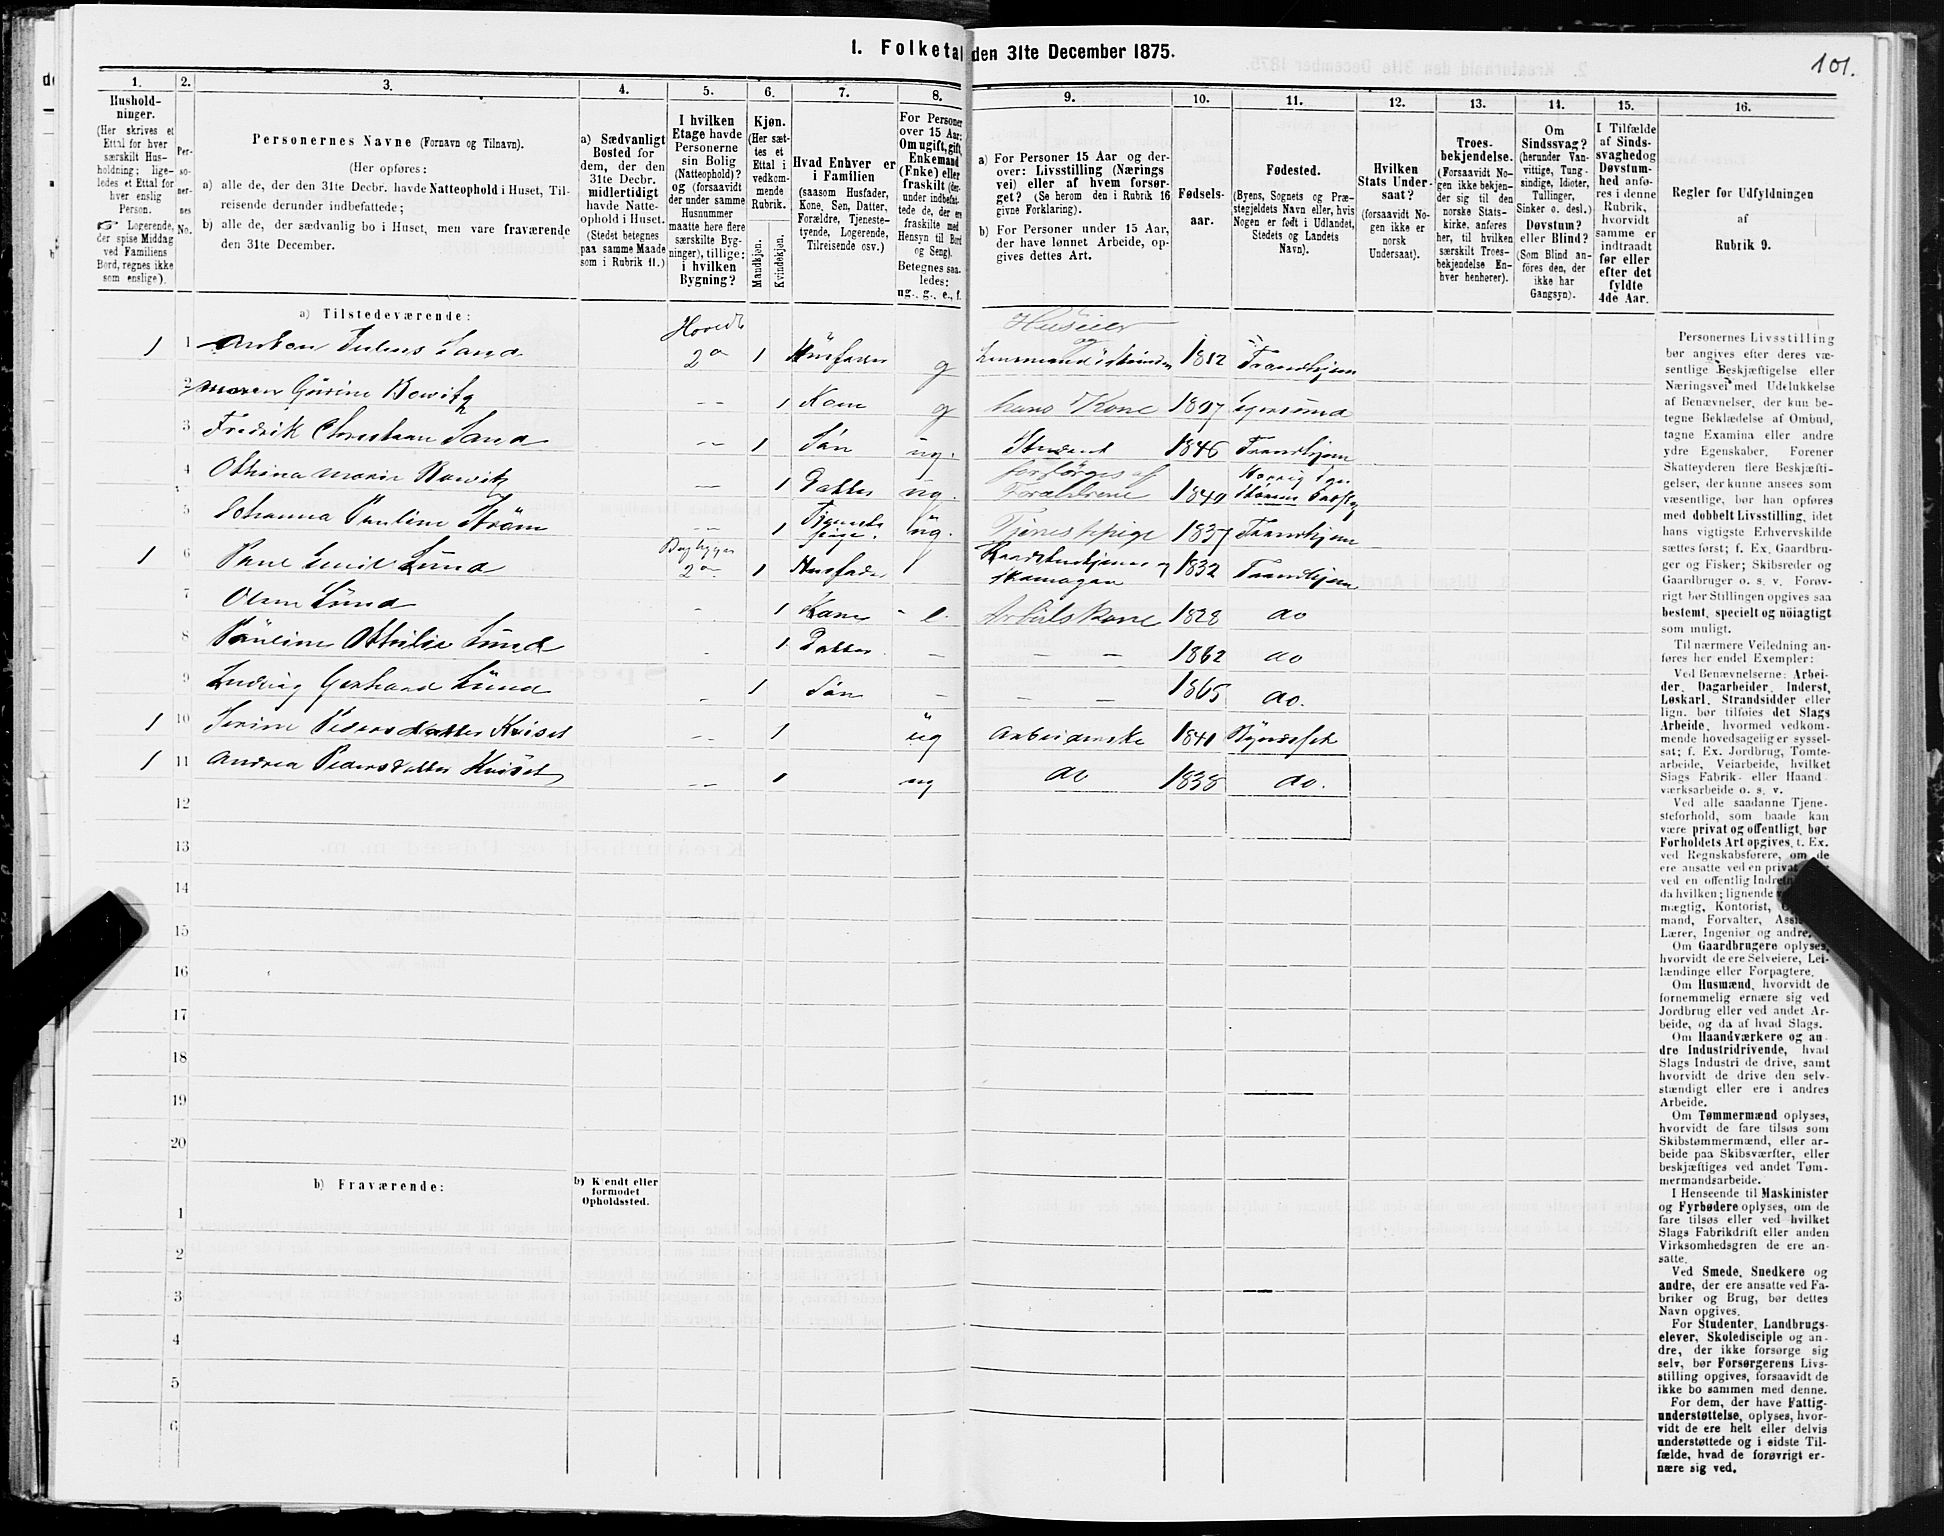 1. Folketal den 31te December 1875.
101.
1.
Hushold-
ninger.
(Her skrives et
Ettal for hver
særskilt Hus-
holdning; lige-
ledes et Ettal for
hver enslig
Person.
☞ Logerende,
der spise Middag
ved Familiens
Bord, regnes ikke
som enslige).
2.
Per-
so-
ner-
nes
No.
3.
Personernes Navne (Fornavn og Tilnavn).
(Her opføres:
a) alle de, der den 31te Decbr. havde Natteophold i Huset, Til-
reisende derunder indbefattede;
b) alle de, der sædvanlig bo i Huset, men vare fraværende
den 31te December.
4.
a) Sædvanligt
Bosted for
dem, der den
31te Decbr.
midlertidigt
havde Natte-
ophold i Huset.
(Stedet betegnes
paa samme Maade
som i Rubrik 11.)
5.
I hvilken
Etage havde
Personerne
sin Bolig
(Natteophold)?
og (forsaavidt
der under samme
Husnummer
maatte here flere
særskilte Byg-
ninger), tillige:
i hvilken
Bygning?
6.
Kjøn.
(Her sæt-
tes et
Ettal i
vedkom-
mende
Rubrik.
Mandkjøn.
Kvindekjøn.
7.
Hvad Enhver er
i Familien
(saasom Husfader,
Kone, Søn, Datter,
Forældre, Tjeneste-
tyende, Logerende,
Tilreisende osv.)
8.
For Personer
over 15 Aar:
Om ugift, gift,
Enkemand
(Enke) eller
fraskilt (der-
under indbefat-
tede de, der ere
fraskilte med
Hensyn til Bord
og Seng).
Betegnes saa-
ledes:
ug., g., e., f.
9.
a) For Personer 15 Aar og der-
over: Livsstilling (Nærings-
vei) eller af hvem forsør-
get? (Se herom den i Rubrik 16
givne Forklaring).
b) For Personer under 15 Aar,
der have lønnet Arbeide, op-
gives dettes Art.
10.
Fødsels-
aar.
11.
Fødested.
(Byens, Sognets og Præ-
stegjeldets Navn eller, hvis
Nogen er født i Udlandet,
Stedets og Landets
Navn).
12.
Hvilken
Stats Under-
saat?
(forsaavidt No-
gen ikke er
norsk
Undersaat).
13.
Troes-
bekjendelse.
(Forsaavidt No-
gen ikke bekjen-
der sig til den
norske Stats-
kirke, anføres
her, til hvilken
særskilt Troes-
bekjendelse En-
hver henhører).
14.
Om
Sindssvag?
(herunder Van-
vittige, Tung-
sindige, Idioter,
Tullinger,
Sinker o. desl.)
Døvstum?
eller Blind?
(Som Blind an-
føres den, der
ikke har
Gangsyn).
15.
I Tilfælde
af Sinds-
svaghed og
Døvstum-
hed anfø-
res i denne
Rubrik,
hvorvidt
samme er
indtraadt
før eller
efter det
fyldte
4de Aar.
16.
Regler for Udfyldningen
af
Rubrik 9.
a) Tilstedeværende:
1 1 Anton Julius Sand Hovedb 2 1 Husfader g Huseier og 1812 Trondhjem
2 Maren Gurine Bowitz 1 Kone g hans Kone 1807 Egersund
3 Fredrik Christian Sand 1 Søn ug. Student 1846 Trondhjem
4 Othina Marie Bowitz 1 Datter ug. forsørges af Forældrene 1849
5 Johanna Pauline Strøm 1 Tjeneste pige. ug. Tjenestepige 1837 Trondhjem
1 6 Paul Emil Lund Bagbygn 2 1 Husfader 1832 Trondhjem
7 Oline Lund 1 Kone e. Arbeidskone 1828 do
8 Pauline Othilie Lund 1 Datter 1862 do
9 Ludvig Gerhard Lund 1 Søn 1865 do.
1 10 Serine Pedersdatter Kviset 1 ug Arbeiderske 1841 Bynesset
1 11 Andrea Pedersdatter Kviset 1 ug do 1838 do.
12
13
14
15
16
17
18
19
20
b) Fraværende:
b) Kjendt eller
formodet
Opholdssted.
1
2
3
4
5
6
Personernes Livsstilling
bør angives efter deres væ-
sentlige Beskjæftigelse eller
Næringsvei med Udelukkelse
af Benævnelser, der kun be-
tegne Beklædelse af Ombud,
tagne Examina eller andre
ydre Egenskaber. Forener
Skatteyderen flere Beskjæfti-
gelser, der kunne ansees som
væsentlige, bør han opføres
med dobbelt Livsstilling, idet
hans vigtigste Erhvervskilde
sættes først; f. Ex. Gaardbru-
ger og Fisker; Skibsreder og
Gaardbruger o. s. v. Forøv-
rigt bør Stillingen opgives saa
bestemt, specielt og nøiagtigt
som muligt.
Til nærmere Veiledning an-
føres her endel Exempler:
Ved Benævnelserne: Arbei-
der, Dagarbeider, Inderst,
Løskarl, Strandsidder eller
lign. bør tilføies det Slags
Arbeide, hvormed vedkom-
mende hovedsagelig er syssel-
sat; f. Ex. Jordbrug, Tomte-
arbeide, Veiarbeide, hvilket
Slags Fabrik- eller Haand-
værksarbeide o. s. v.
Ved alle saadanne Tjene-
steforhold, som baade kan
være privat og offentligt, bør
Forholdets Art opgives, t. Ex.
ved Regnskabsførere, om de
ere ansatte ved en privat
ved en offentlig
da hvilken; lignende
mægtig, Kontorist,
mand, Forvalter,
Lærer, Ingeniør og andre.
Om Gaardbrugere oplyses,
hvorvidt de ere Selveiere, Lei-
lændinge eller Forpagtere.
Om Husmænd, hvorvidt de
fornemmelig ernære sig ved
Jordbrug eller ved andet Ar-
beide, og da af hvad Slags.
Om Haandværkere og an-
dre Industridrivende, hvad
Slags Industri de drive, samt
hvorvidt de drive den selv-
stændigt eller ere i andres
Arbeide.
Om Tømmermænd oplyses,
hvorvidt de fare tilsøs som
Skibstømmermænd, eller ar-
beide paa Skibsværfter, eller
beskjæftiges ved andet Tøm-
mermandsarbeide.
I Henseende til Maskinister
og Fyrbødere oplyses, om de
fare tilsøs eller ved hvilket
Slags Fabrikdrift eller anden
Virksomhedsgren de ere an-
satte.
Ved Smede, Snedkere og
andre, der ere ansatte ved Fa-
briker og Brug, bør dettes
Navn opgives.
For Studenter, Landbrugs-
elever, Skoledisciple og an-
dre, der ikke forsørge sig
selv, bør Forsørgerens Livs-
stilling opgives, forsaavidt de
ikke bo sammen med denne.
For dem, der have Fattig-
understøttelse, oplyses, hvor-
vidt de ere helt eller delvis
understøttede og i sidste Til-
fælde, hvad de forøvrigt er-
nære sig ved.